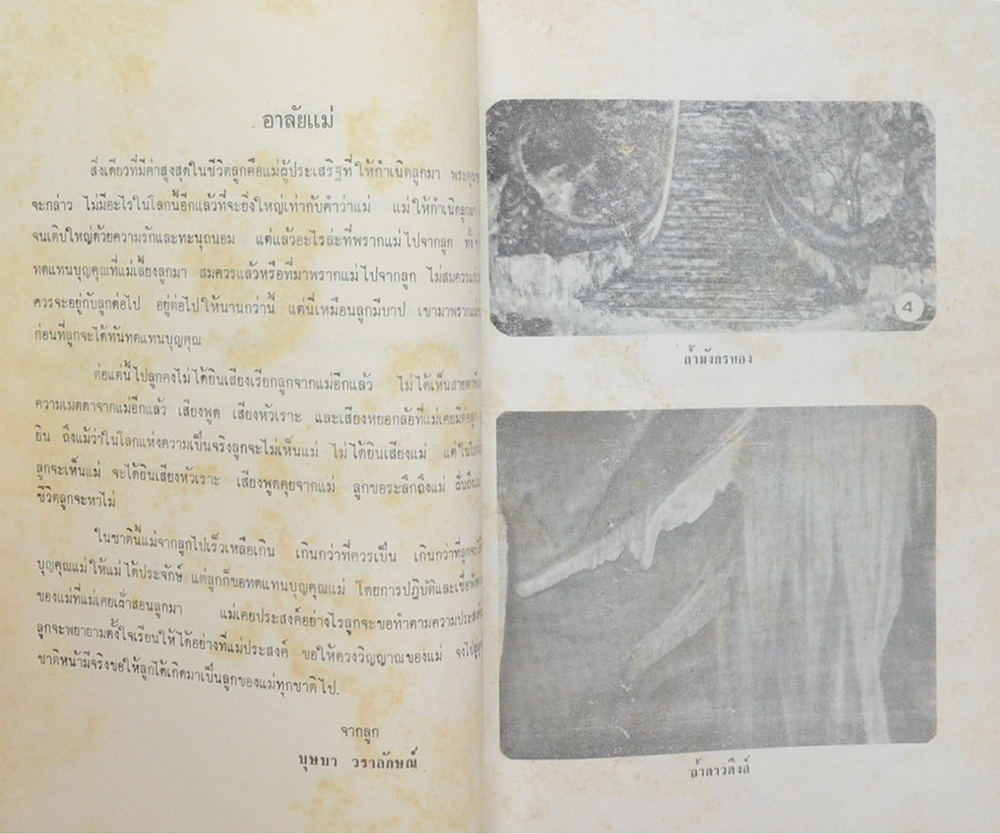 อาลัยแม่
สิ่งเดียวที่มีค่าสูงสุดในชีวิตลูกคือแม่ผู้ประเสริฐที่ให้กำเนิดลูกมา
จะกล่าว ไม่มีอะไรในโลกนี้อีกแล้วที่จะยิ่งใหญ่เท่ากับคำว่าแม่ แม่ให้กำเนิดลูกมา
จนเติบใหญ่ด้วยความรักและทะนุถนอม แต่แล้วอะไรล่ะที่พรากแม่ไปจากลูก
ทดแทนบุญคุณที่แม่เลี้ยงลูกมา สมควรแล้วหรือที่มาพรากแม่ไปจากลูก
ควรจะอยู่กับลูกต่อไป อยู่ต่อไปให้นานกว่านี้ แต่นี่เหมือนลูกมีบาป เขามาพรากแม่
ก่อนที่ลูกจะได้ทันทดแทนบุญคุณ
ต่อแต่นี้ไปลูกคงไม่ได้ยินเสียงเรียกลูกจากแม่อีกแล้ว ไม่ได้เห็นสายตา
ความเมตตาจากแม่อีกแล้ว เสียงพูด เสียงหัวเราะ และเสียงหยอกล้อที่แม่เคยมีต่อ
ยิน ถึงแม้ว่าในโลกแห่งความเป็นจริงลูกจะไม่เห็นแม่ ไม่ได้ยินเสียงแม่
ลูกจะเห็นแม่ จะได้ยินเสียงหัวเราะ เสียงพูดคุยจากแม่ ลูกขอระลึกถึงแม่
ชีวิตลูกจะหาไม่
ในชาตินี้แม่จากลูกไปเร็วเหลือเกิน เกินกว่าที่ควรเป็น เกินกว่าที่ลูกจะ
บุญคุณแม่ให้แม่ได้ประจักษ์ แต่ลูกก็ขอทดแทนบุญคุณแม่ โดยการปฏิบัติและ
ของแม่ที่แม่เคยเฝ้าสอนลูกมา แม่เคยประสงค์อย่างไรลูกจะขอทำตามความประสงค์
ลูกจะพยายามตั้งใจเรียนให้ได้อย่างที่แม่ประสงค์ ขอให้ดวงวิญญาณของแม่ จงไป
ชาติหน้ามีจริงขอให้ลูกได้เกิดมาเป็นลูกของแม่ทุกชาติไป.
จากลูก
บุษบา วราลักษณ์
4
ถ้ำมังกรทอง
ถ้ำดาวดึงส์